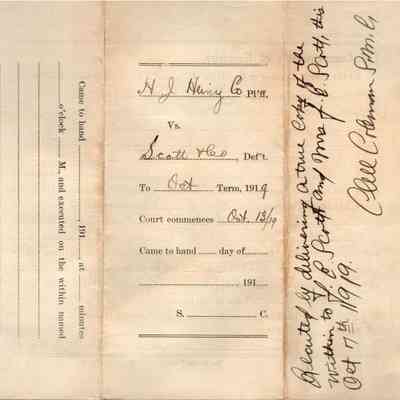 Came to hand 191 at minutes
o'clock M., and executed on the within named
H J Heinz Co Pl'ff,
Vs.
Scott & Co, Def't.
To Oct Term, 1919
Court commences Oct. 13/19
Came to hand day of
191
S. C.
Executed by delivering a true Copy of the
within to J. E. Scott and Mrs J. E. Scott, this
Oct 7th 1919.
Coleman